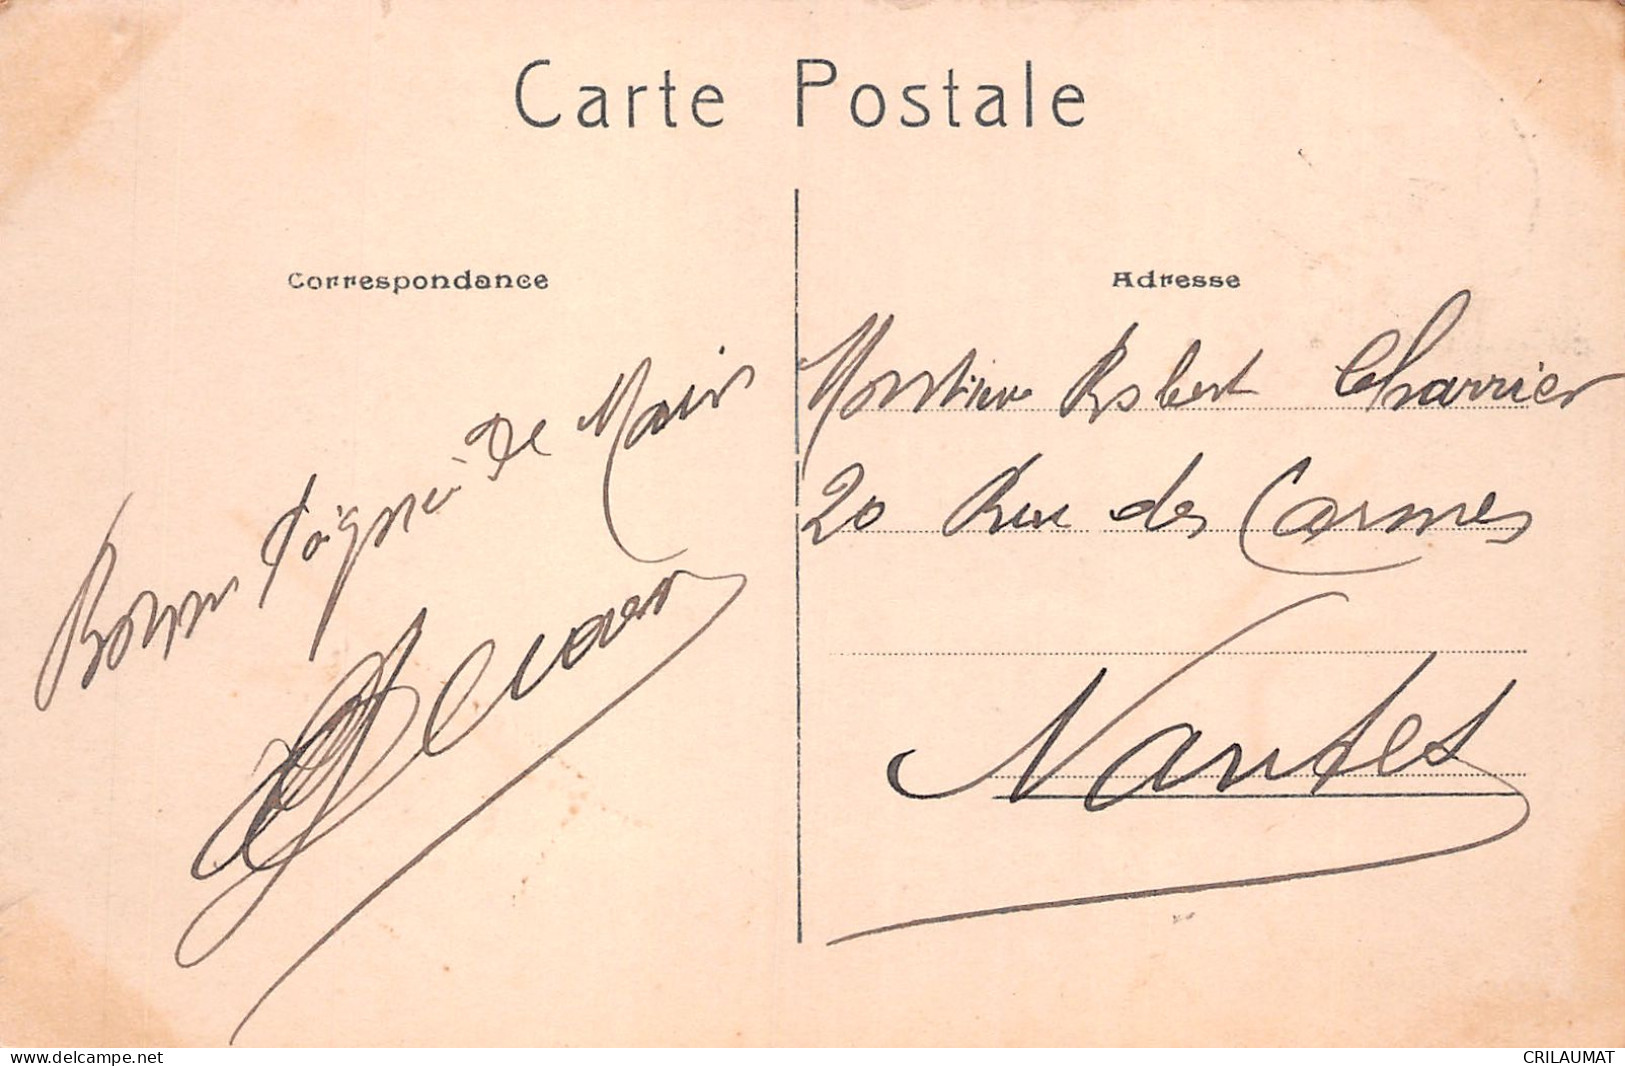 Carte Postale
Correspondance
Adresse
Bonne Poignée De Main
Monsieur Robert Charrier
20 Rue des Carmes
Nantes
delcampe.net
CRILAUMAT